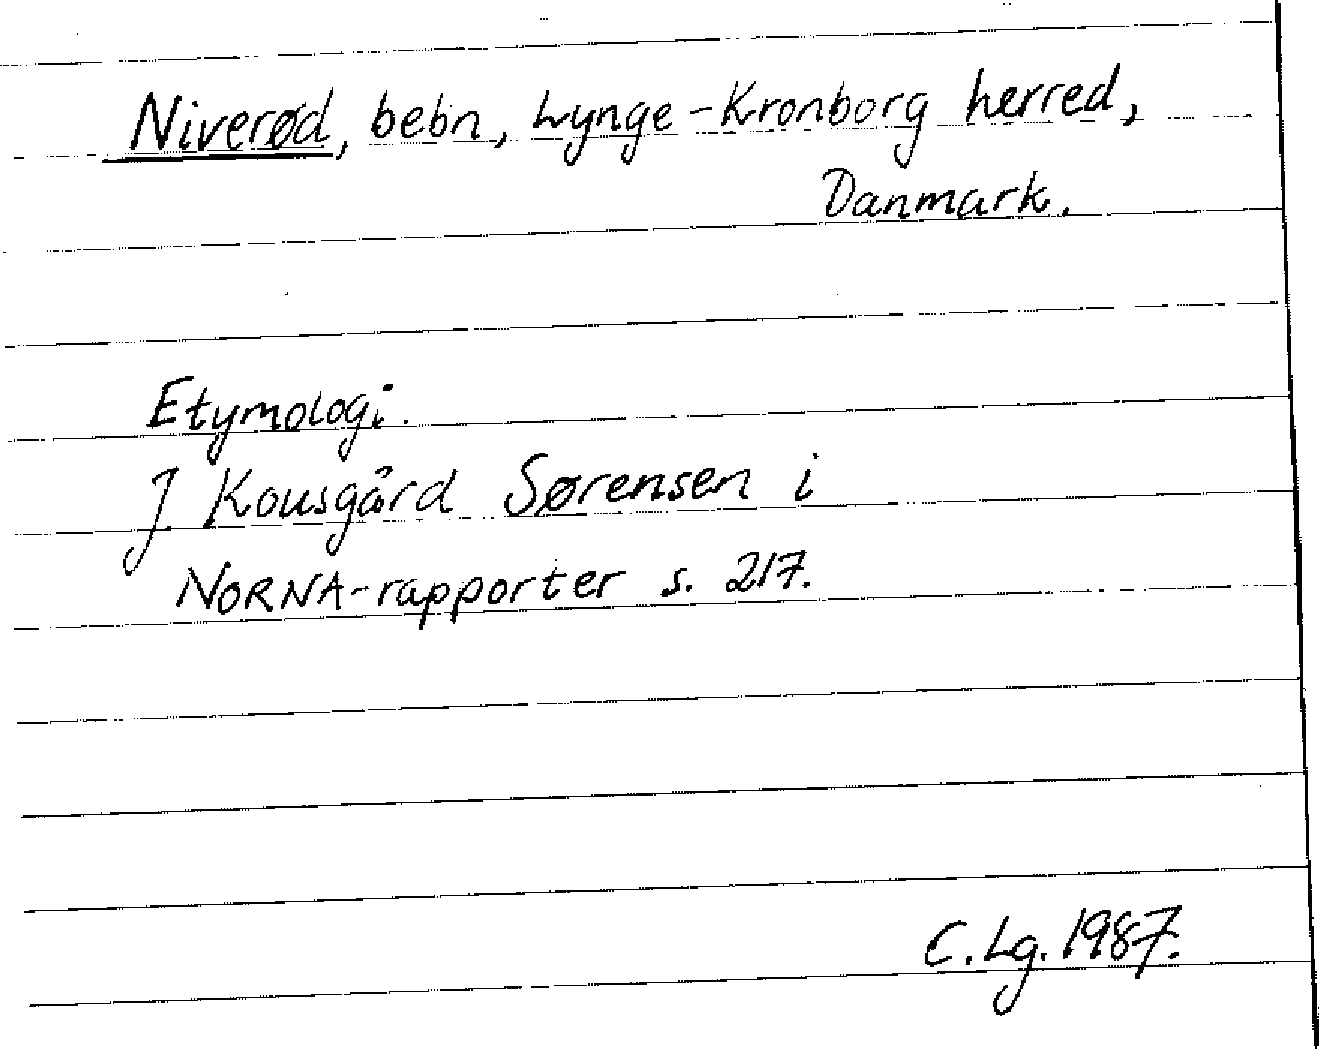 Niverød, bebn, Lynge-Kronborg herred,
Danmark.
Etymologi.
J Kousgård Sørensen i
NORNA-rapporter s. 217.
C. Lg. 1987.